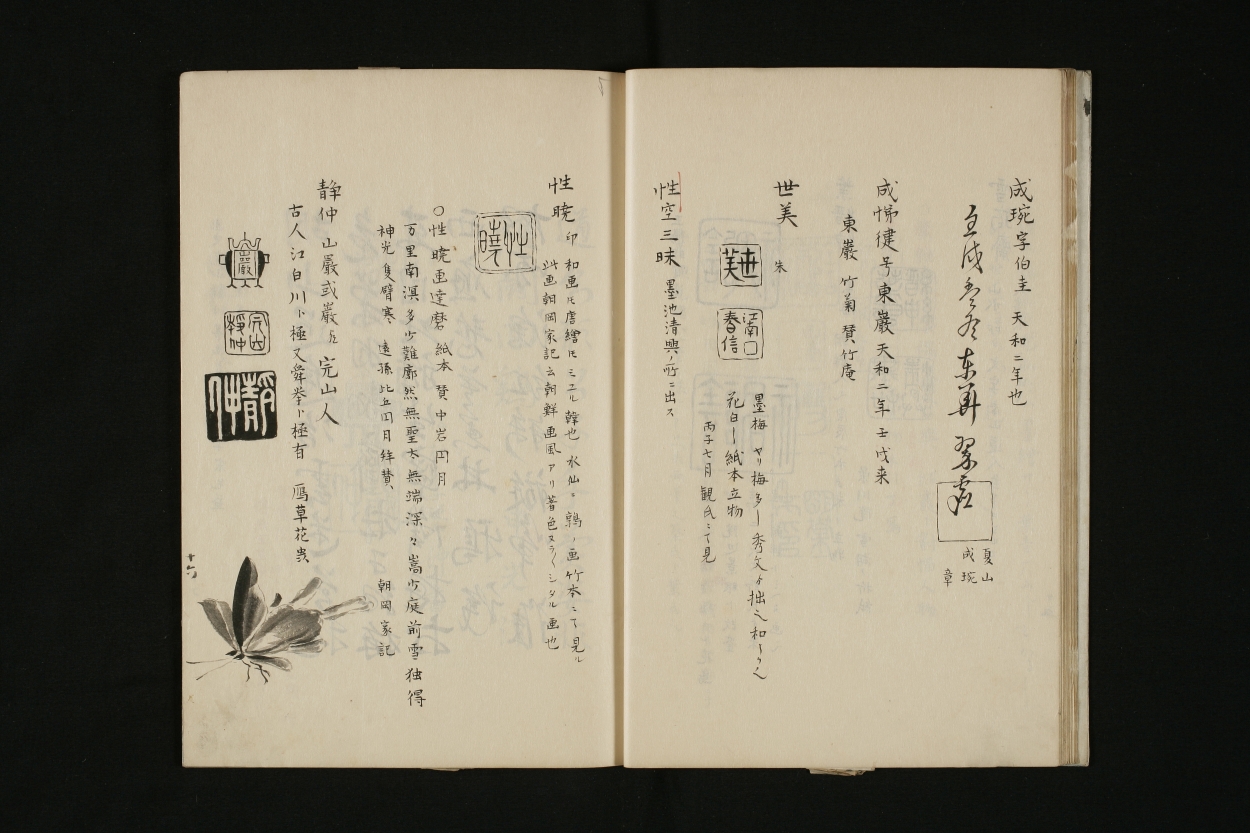 成琬字伯圭 天和二年也
夏山
成琬
章
成悌健号東巖天和二年壬戌来
東巖 竹菊 賛竹庵
世美
朱
世美
江南
春信
墨梅 ヤリ梅多シ秀文ヨ拙
花白シ紙本立物
丙子七月 観氏ニテ見
性空三昧 墨池清興ノ所ニ出ス
性曉 印 和画ニモ唐繪ニモミエル韓也 水仙ニ鶉ノ画竹本ニテ見ル
此画朝岡家記云朝鮮画風アリ着色ヌラクシタル画也
性曉
〇性曉画達磨紙本 賛中岩円月
万里南溟多少難廓然無聖太無端深々嵩少庭前雪独得
神光隻臂寒 遠孫比丘円月拝賛 朝岡家記
静仲 山巖或巖 完山人
古人江白川ト極又舜挙ト極有 鴈草花
巖
完山
静仲
静仲